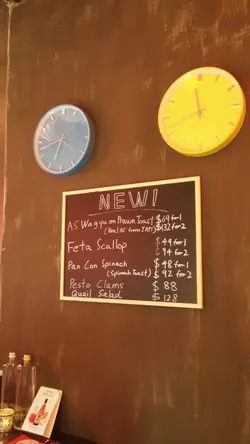 NEW!
A5 Wagyu on Prawn Toast $69 for 1
(Real A5 from JAP!) $132 for 2
Feta Scallop $49 for 1
$94 for 2
Pan Con Spinach $48 for 1
(Spinach Toast) $92 for 2
Pesto Clams $88
Quail Salad $128